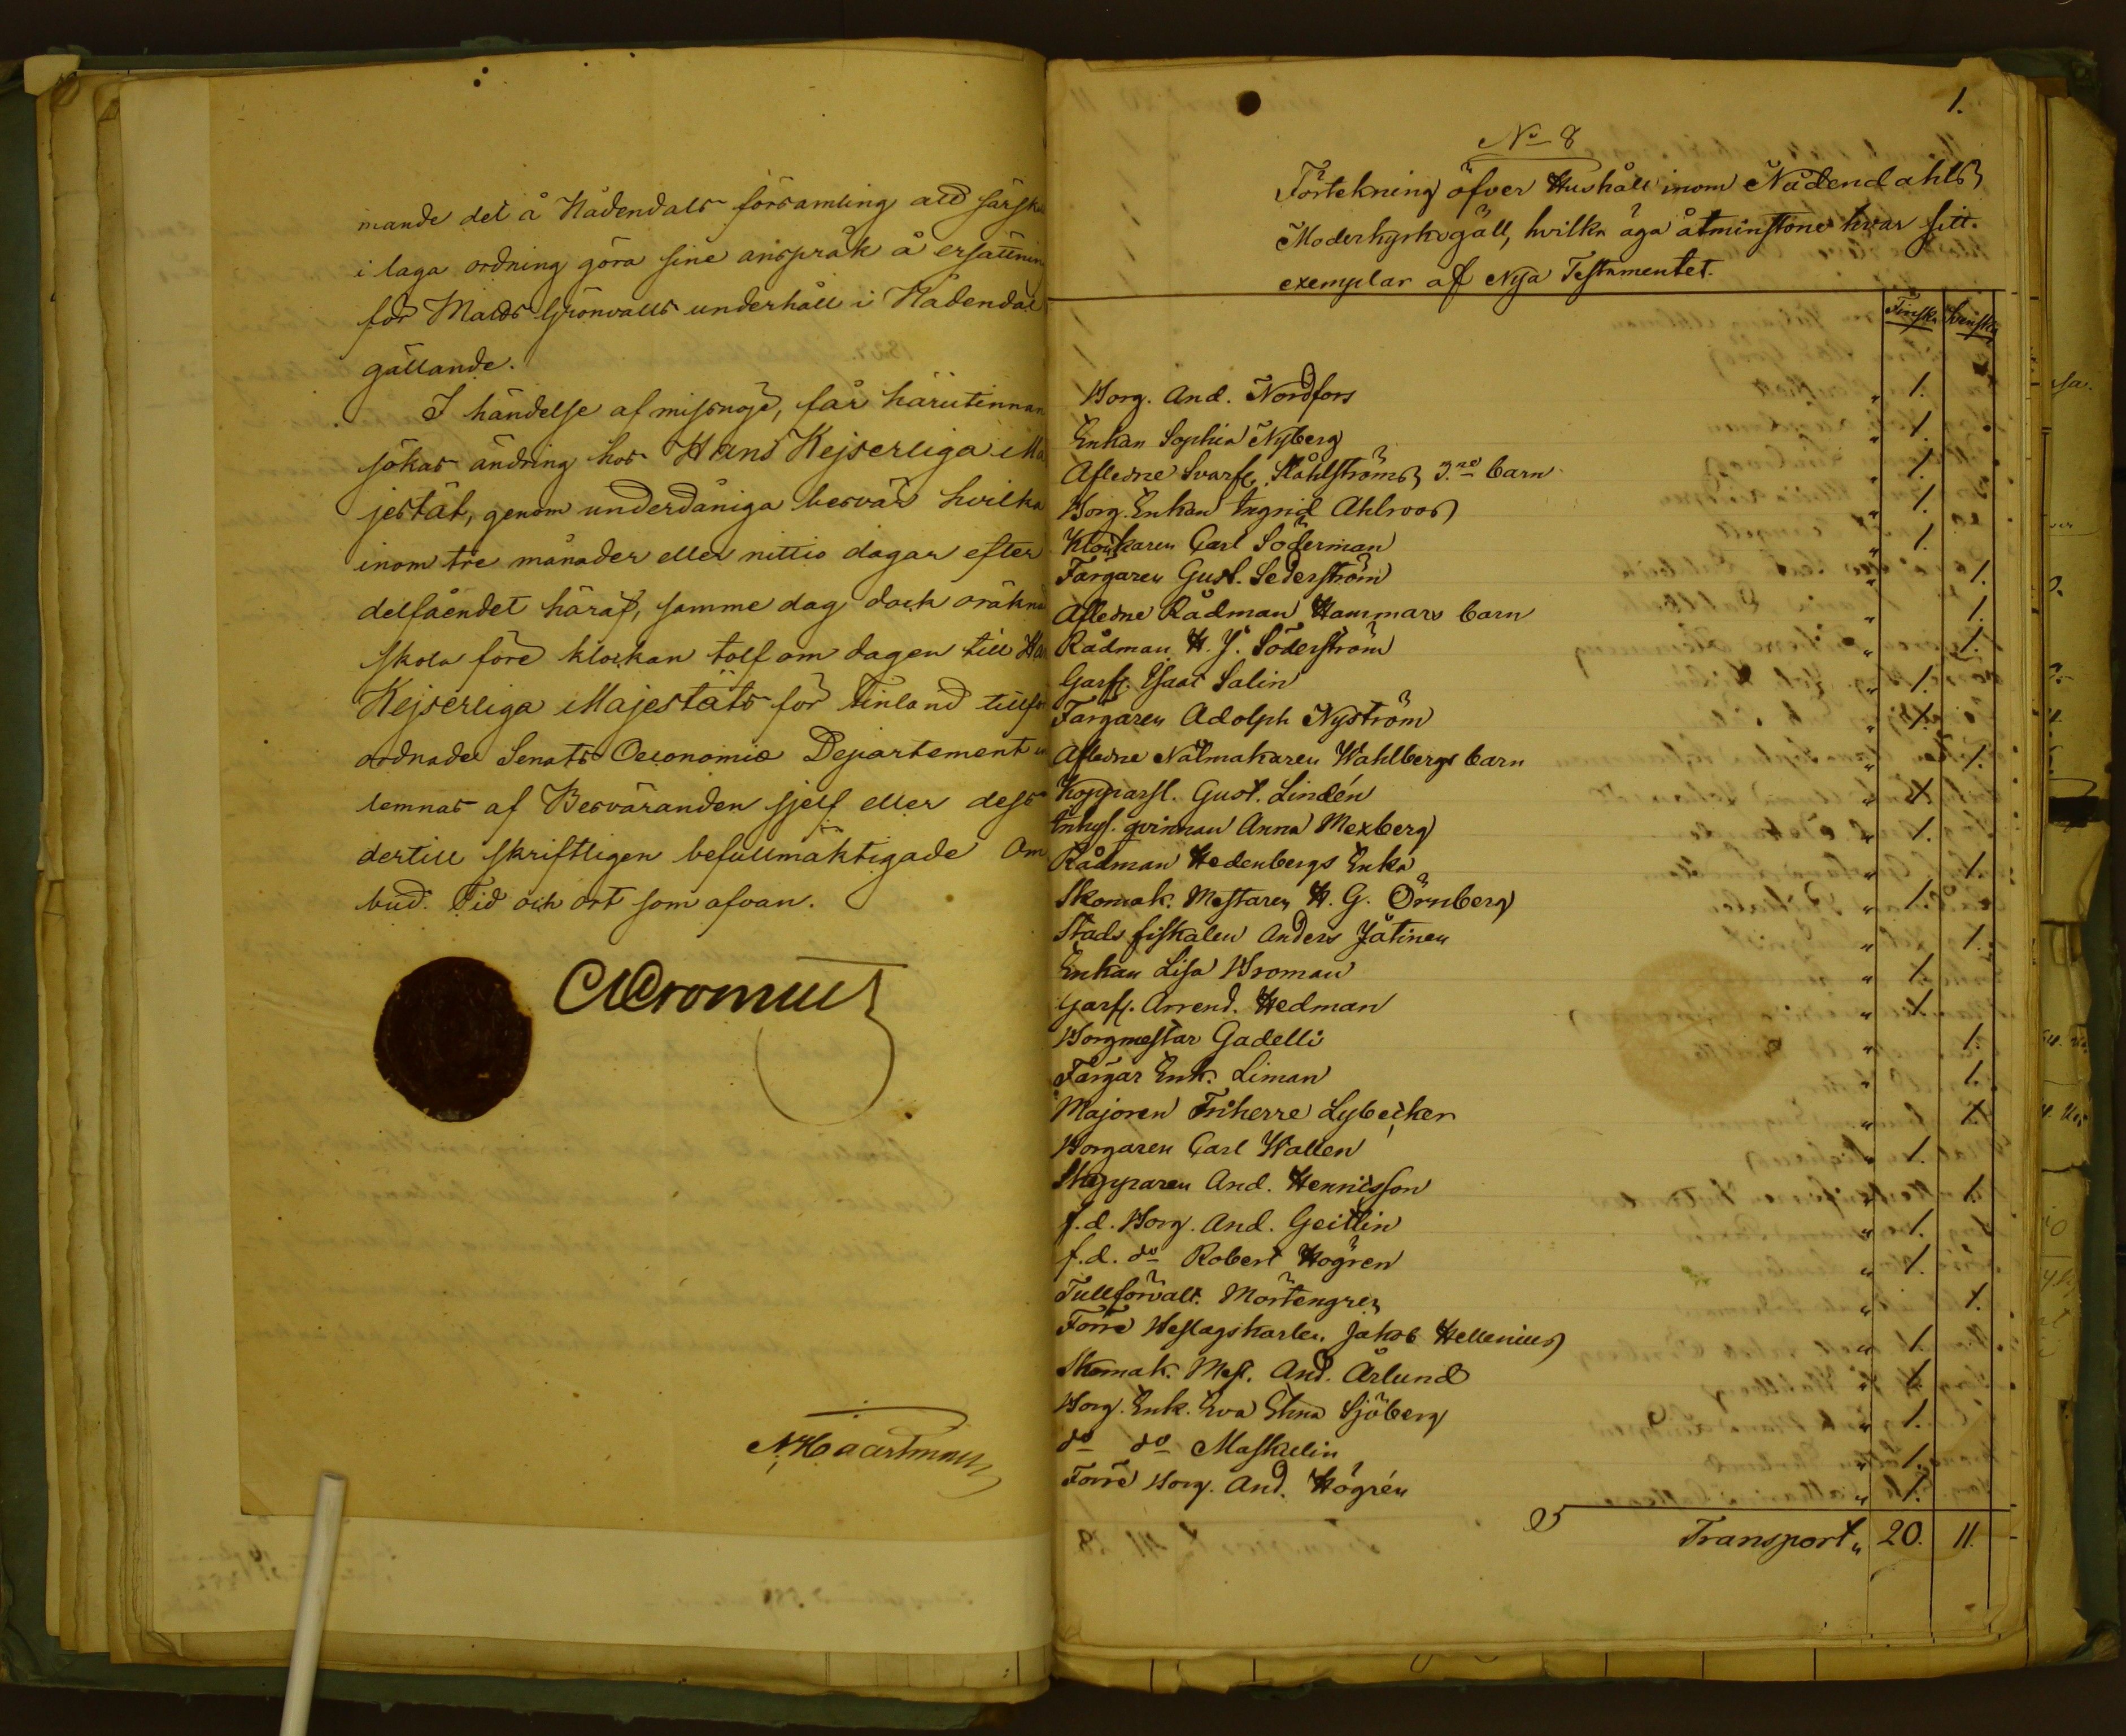 mande det å Nådendals församling att särsk
i laga ordning göra sine anspråk å ersättnin
för Matts Grönvalls underhåll i Nådendal
gällande.
I händelse af missnöje, får härutinnan
sökas ändring hos Hans Kejserliga Ma
jestät, genom underdåniga besvär hvilka
inom tre månader eller nittio dagar efter
delfåendet häraf, samme dag dock oräkna
skola före klockan tolf om dagen till Ha
Kejserliga Majestäts för Finland tillfö
ordnade Senats Oeconomie Departement
lemnas af Besväranden sjelf eller dess
dertill skriftligen befullmäktigade Om
bud. Tid och ort som ofvan.
N. Haartman
1.
No 8
Förtekning öfver Hushåll inom Nådendahls
Moderkyrkogäll, hvilka äga åtminstone hvar sitt
exemplar af Nya Testamentet.
Finska Svenska
Borg. And. Nordfors " 1.
Enkan Sophia Nyberg " 1.
Afledne Svarfv. Ståhlströms 3.ne barn " 1.
Borg. Enkan Ingrid Ahlroos " 1.
Klockaren Carl Söderman " 1.
Färgaren Gust. Sederström " 1.
Afledne Rådman Hammars barn " 1.
Rådman H. J. Söderström " 1.
Garfv. Isaac Salin " 1.
Färgaren Adolph Nyström " 1.
Afledne Nålmakaren Wahlbergs barn " 1.
Kopparsl. Gust. Lindén " 1.
Inhys. qvinnan Anna Mexberg " 1.
Rådman Hedenbergs Enka " 1.
Skomak. Mestaren H. G. Örnberg " 1.
Stads fiskalen Anders Jåtinen " 1.
Enkan Lisa Broman " 1.
Garfv. Arrend. Hedman " 1.
Borgmestar Gadelli " 1.
Färgar Enk. Liman " 1.
Majoren Friherre Lybecker " 1.
Borgaren Carl Wallen " 1.
Skepparen And. Hennisson " 1.
f.d. Borg. And. Geitlin " 1.
f.d. do Robert Högren " 1.
Tullförvalt. Mörtengren " 1.
Förre Beslagskarlen Jakob Hellenius " 1.
Skomak. Mest. And. Ärlund " 1.
Borg. Enk. Eva Sjöberg " 1.
do do Maskelin " 1.
Förre Borg. And. Högrén " 1.
Transport " 20. 11.